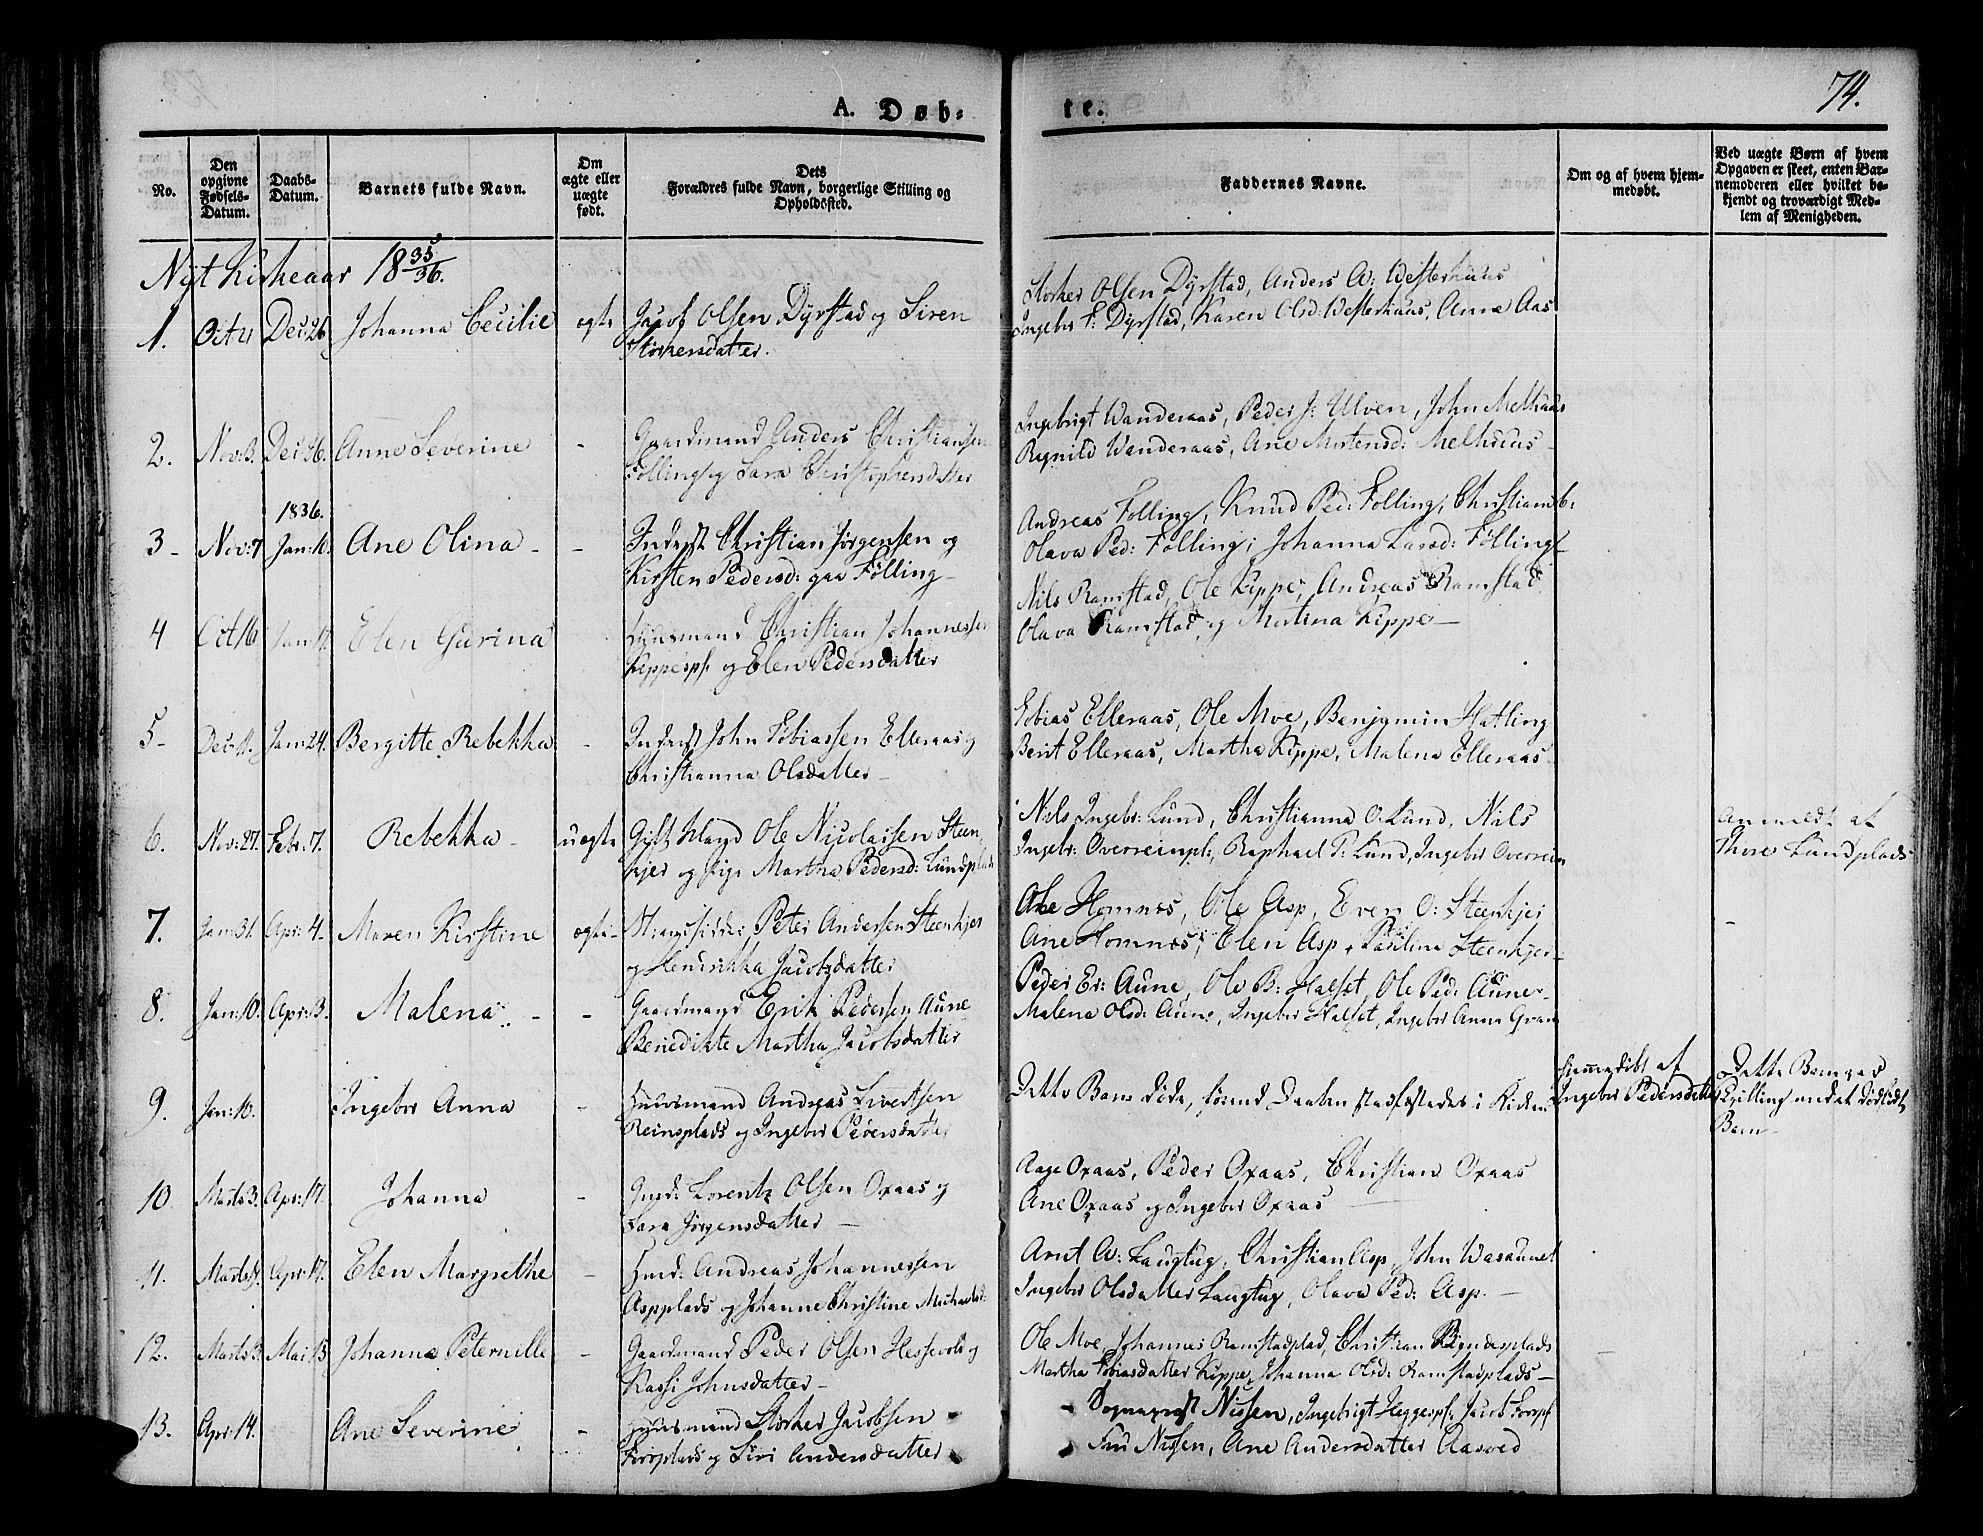 74.
A. Døb-
te.
No.
Den opgivne Fødsels-Datum.
Daabs-Datum.
Barnets fulde Navn.
Om ægte eller uægte født.
Dets Forældres fulde Navn, borgerlige Stilling og Opholdssted.
Faddernes Navne.
Om og af hvem hjemmedøbt.
Ved uægte Børn af hvem Opgaven er skeet, enten Barnemoderen eller hvilket bekjendt og troværdigt Medlem af Menigheden.
Nyt Kirkeaar 1835/36.
1. Dec: 26. Johanna Cecilie ægte Jacob Olsen Dyrstad og Siren
Storkersdatter.
Storker Olsen Dyrstad, Anders A: Westerhuus
Ingebor T: Dyrstad, Karen Olsd: Westerhuus, Anne Aas
2. Nov: 3. Dec: 26. Anne Severine - Gaardmand Anders Christiansen
Følling og Sara Christophersdatter
Ingebrigt Wanderaas, Peder J: Ulven, John Melhuus
Regnild Wanderaas, Ane Mortensd: Melhuus -
1836.
3 - Nov: 7 Jan: 10. Ane Olina - - Inderst Christian Jørgensen og
Kirsten Pedersd: gaa Følling -
Andreas Følling, Knud Ped: Følling, Christian
Olava Ped: Følling, Johanna Larsd: Følling
4 Oct 16 Jan: 17. Elen Gurina Huusmand Christian Johannessen
Kippespl: og Elen Pedersdatter
Nils Ramstad, Ole Kippe, Andreas Ramstad
Olava Ramstad og Martina Kippe -
5 - Dec: 11. Jan: 24. Bergitte Rebekka - Inderst John Tobiassen Elleraas og
Christianna Olsdatter -
Tobias Elleraas, Ole Moe, Benjamin Hatling
Berit Elleraas, Martha Kippe, Malena Elleraas -
6. Nov: 27. Febr: 7. Rebekka - uægte Gift Mand Ole Nicolaisen Steen
kjer og Pige Martha Pedersd: Lundplads
Nils Ingebr: Lund, Christianna O: Lund, Nils
Ingebr: Overreinpl:, Raphael P: Lund, Ingebor Overrein
Anmeldt af
Thore Lundplads
7. Jan: 31. Apr: 4. Maren Kirstine ægte - Strandsidder Peter Andersen Steenkjer
og Hendrikka Jacobsdatter
Ole Homnes, Ole Asp, Even O: Steenkjer
Ane Homnes, Elen Asp, Pauline Steenkjer -
8. Jan: 10. Apr: 3. Malena - - Gaardmand Erik Pedersen Aune
Benedikte Martha Jacobsdatter
Peder Er: Aune, Ole B: Halset, Ole Ped: Aune -
Malena Olsd: Aune, Ingebor Halset, Ingebor Anna Gran
9. Jan: 10. Ingebor Anna - Huusmand Andreas Sivertsen
Reinsplads og Ingebor Pedersdatter
Dette Barn døde, førend Daaben stadfæstedes i Kirken
Hjemmedøbt af
Ingebor Pedersdatter
Dette Barn var
Tvilling med et dødfødt
Barn -
10. Marts 3. Apr: 17. Johanna - Gmd: Lorentz Olsen Oxaas og
Sara Jørgensdatter -
Aage Oxaas, Peder Oxaas, Christian Oxaas
Ane Oxaas og Ingebor Oxaas -
11. Marts Apr: 17. Elen Margrethe - Hmd: Andreas Johannessen
Aspplads og Johanne Christine Michaelsd:
Arnt A: Laugtug, Christian Asp, John Wasaunet
Ingebor Olsdatter Laugtug, Olava Ped: Asp. -
12. Marts 3. Mai 13 Johanna Peternille - Gaardmand Peder Olsen Hessevold og
Massi Johnsdatter -
Ole Moe, Johannes Ramstadplad, Christian plads
Martha Tobiasdatter Kippe, Johanna Olsd: Ramstadplads -
13. Apr: 14. Ane Severine - Huusmand Storker Jacobsen
plads og Siri Andersdatter
- Sogneprest Nissen, Ingebrigt Heggespl: Jacob
Fru Nissen, Ane Andersdatter Aasved